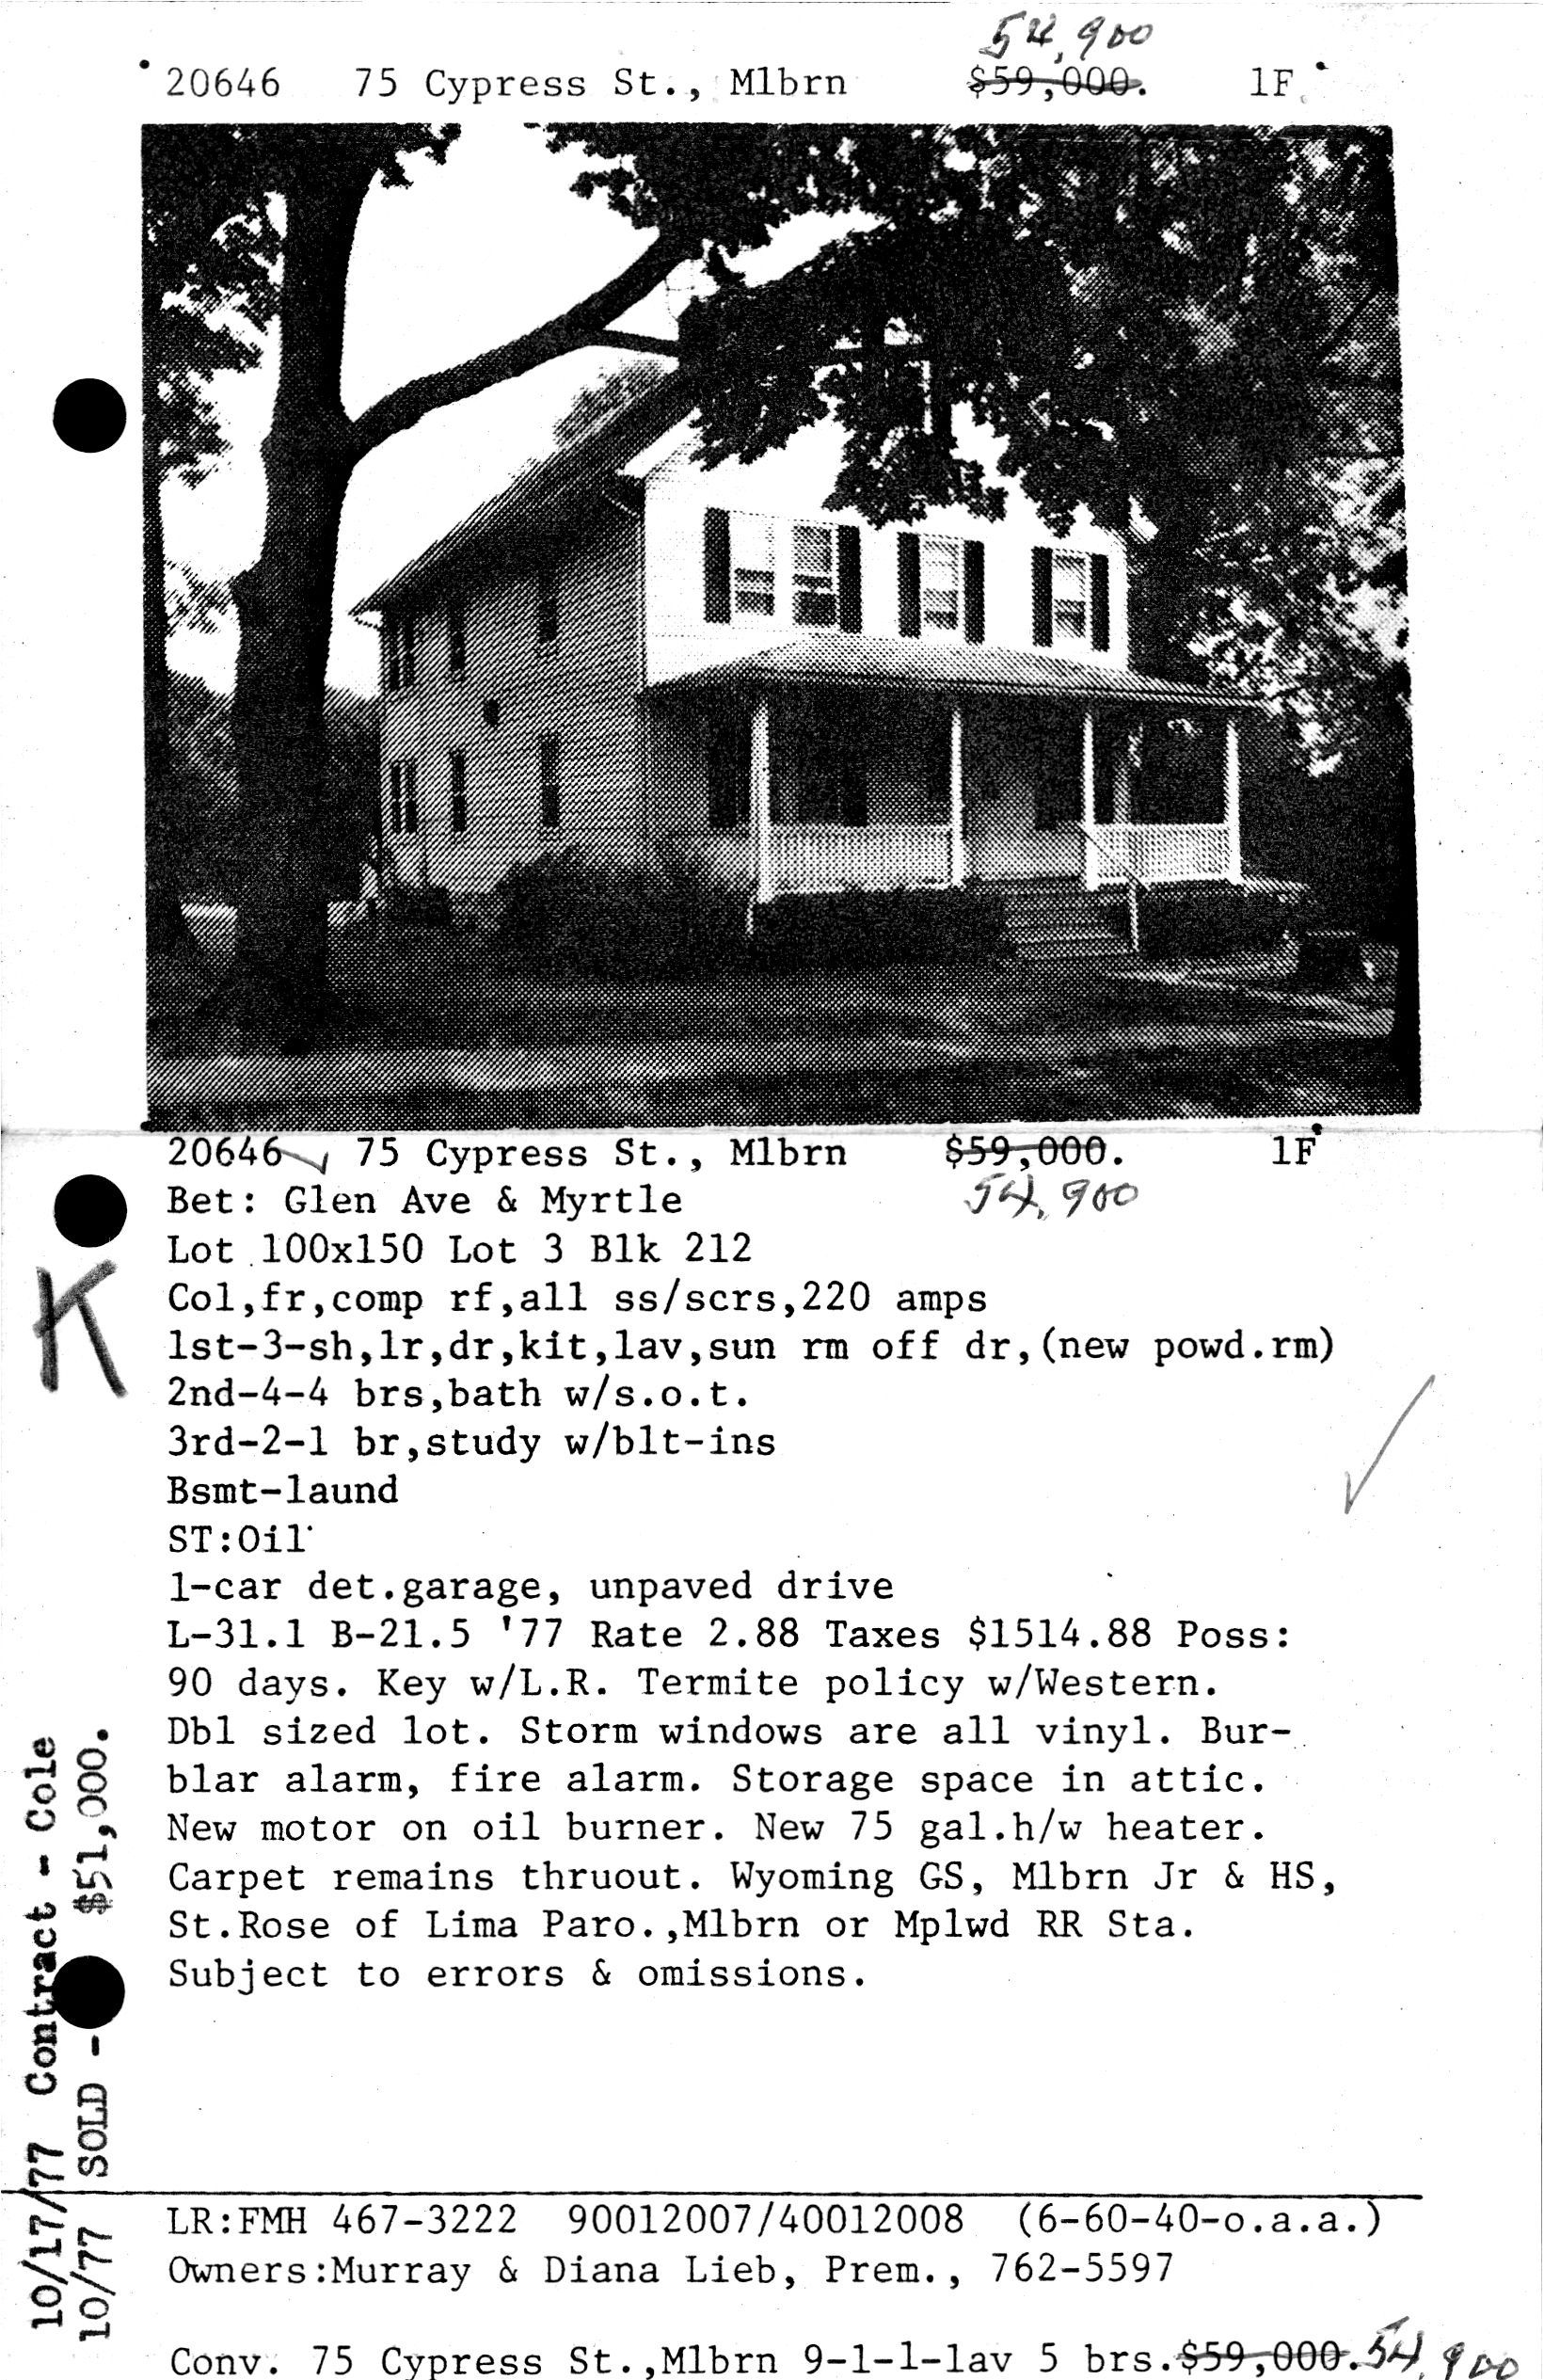 54,900
20646 75 Cypress St., Mlbrn $59,000. 1F
20646 75 Cypress St., Mlbrn $59,000. 1F
Bet: Glen Ave & Myrtle 54,900
Lot 100x150 Lot 3 Blk 212
K
Col,fr,comp rf,all ss/scrs,220 amps
1st-3-sh,lr,dr,kit,lav,sun rm off dr,(new powd.rm)
2nd-4-4 brs,bath w/s.o.t.
3rd-2-1 br,study w/blt-ins
Bsmt-laund
ST:Oil
1-car det.garage, unpaved drive
L-31.1 B-21.5 '77 Rate 2.88 Taxes $1514.88 Poss:
90 days. Key w/L.R. Termite policy w/Western.
Dbl sized lot. Storm windows are all vinyl. Bur-
blar alarm, fire alarm. Storage space in attic.
New motor on oil burner. New 75 gal.h/w heater.
Carpet remains thruout. Wyoming GS, Mlbrn Jr & HS,
St.Rose of Lima Paro.,Mlbrn or Mplwd RR Sta.
Subject to errors & omissions.
10/17/77 Contract - Cole
10/77 SOLD - $51,000.
LR:FMH 467-3222 90012007/40012008 (6-60-40-o.a.a.)
Owners:Murray & Diana Lieb, Prem., 762-5597
Conv. 75 Cypress St.,Mlbrn 9-1-1-lav 5 brs.$59,000.54,900